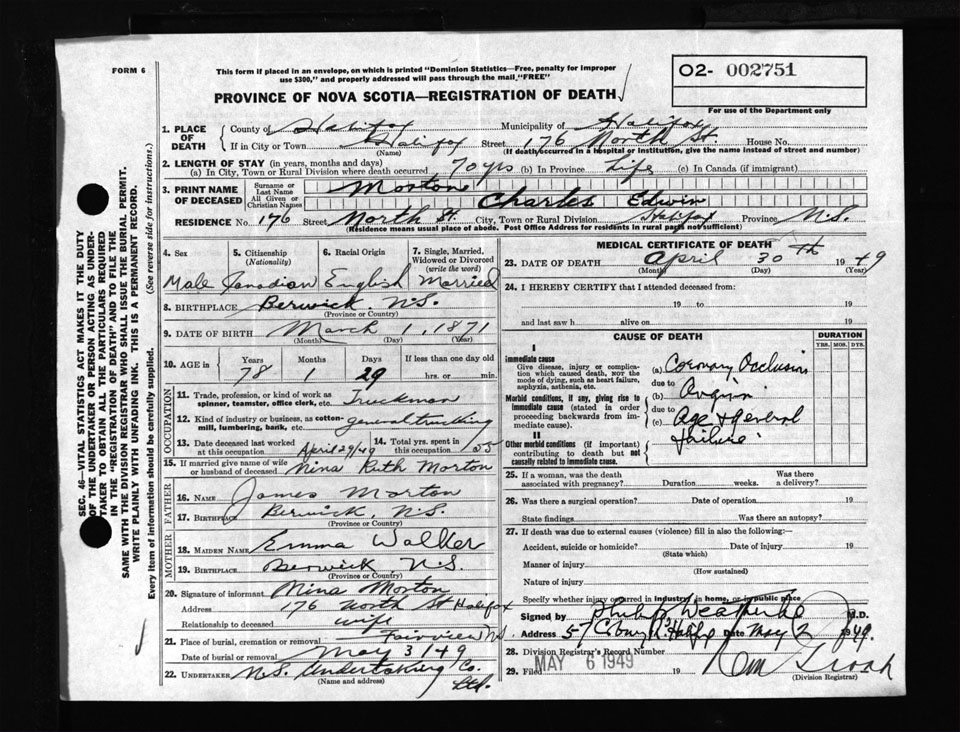 FORM 6
This form if placed in an envelope, on which is printed "Dominion Statistics—Free, penalty for improper
use $300," and properly addressed will pass through the mail "FREE"
O2- 002751
For use of the Department only
PROVINCE OF NOVA SCOTIA—REGISTRATION OF DEATH
1. PLACE OF DEATH
County of Halifax Municipality of Halifax
If in City or Town Halifax Street 176 North St. House No.
(Name) (If death occurred in a hospital or institution, give the name instead of street and number)
2. LENGTH OF STAY (in years, months and days)
(a) In City, Town or Rural Division where death occurred 70 yrs (b) In Province Life (c) In Canada (if immigrant)
3. PRINT NAME OF DECEASED
Surname or Last Name Morton
All Given or Christian Names Charles Edwin
RESIDENCE No. 176 Street North St. City, Town or Rural Division Halifax Province N.S.
(Residence means usual place of abode. Post Office Address for residents in rural parts not sufficient)
4. Sex 5. Citizenship (Nationality) 6. Racial Origin 7. Single, Married, Widowed or Divorced (write the word)
Male Canadian English Married
8. BIRTHPLACE Berwick, N.S.
(Province or Country)
9. DATE OF BIRTH March 1, 1871
(Month) (Day) (Year)
10. AGE in Years Months Days If less than one day old
78 1 29 hrs. or min.
OCCUPATION
11. Trade, profession, or kind of work as spinner, teamster, office clerk, etc. Truckman
12. Kind of industry or business, as cotton-mill, lumbering, bank, etc. general trucking
13. Date deceased last worked at this occupation April 29/49 14. Total yrs. spent in this occupation 55
15. If married give name of wife or husband of deceased Nina Ruth Morton
FATHER
16. NAME James Morton
17. BIRTHPLACE Berwick, N.S.
(Province or Country)
MOTHER
18. MAIDEN NAME Emma Walker
19. BIRTHPLACE Berwick N.S.
(Province or Country)
20. Signature of informant Nina Morton
Address 176 North St Halifax
Relationship to deceased wife
21. Place of burial, cremation or removal Fairview NS
Date of burial or removal May 3/49
22. UNDERTAKER N.S. Undertaking Co. Ltd.
(Name and address)
MEDICAL CERTIFICATE OF DEATH
23. DATE OF DEATH April 30th 1949
(Month) (Day) (Year)
24. I HEREBY CERTIFY that I attended deceased from:
19 to 19
and last saw h alive on 19
CAUSE OF DEATH
DURATION
YRS. MOS. DYS.
I
Immediate cause
Give disease, injury or complication which caused death, NOT the mode of dying, such as heart failure, asphyxia, asthenia, etc.
(a) Coronary Occlusion
due to
Morbid conditions, if any, giving rise to immediate cause (stated in order proceeding backwards from immediate cause).
(b) Angina
due to
(c) Age & general failure
II
Other morbid conditions (if important) contributing to death but not causally related to immediate cause.
25. If a woman, was the death associated with pregnancy? Duration weeks. Was there a delivery?
26. Was there a surgical operation? Date of operation 19
State findings Was there an autopsy?
27. If death was due to external causes (violence) fill in also the following:—
Accident, suicide or homicide? Date of injury 19
(State which)
Manner of injury
(How sustained)
Nature of injury
Specify whether injury occurred in industry, in home, or in public place
Signed by Philip Weatherbe M.D.
Address 57 Coburg Rd Halifax Date May 2 1949.
28. Division Registrar's Record Number
29. Filed MAY 6 1949 19
(Division Registrar)
SEC. 46—VITAL STATISTICS ACT MAKES IT THE DUTY
OF THE UNDERTAKER OR PERSON ACTING AS UNDER-
TAKER TO OBTAIN ALL THE PARTICULARS REQUIRED
IN THE "REGISTRATION OF DEATH" AND TO FILE THE
SAME WITH THE DIVISION REGISTRAR WHO SHALL ISSUE THE BURIAL PERMIT.
WRITE PLAINLY WITH UNFADING INK. THIS IS A PERMANENT RECORD.
Every item of information should be carefully supplied. (See reverse side for instructions.)